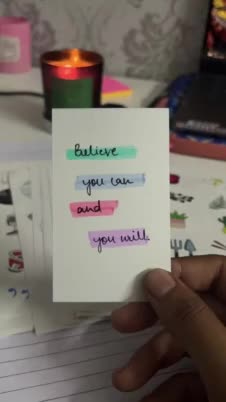 believe
you can
and
you will.